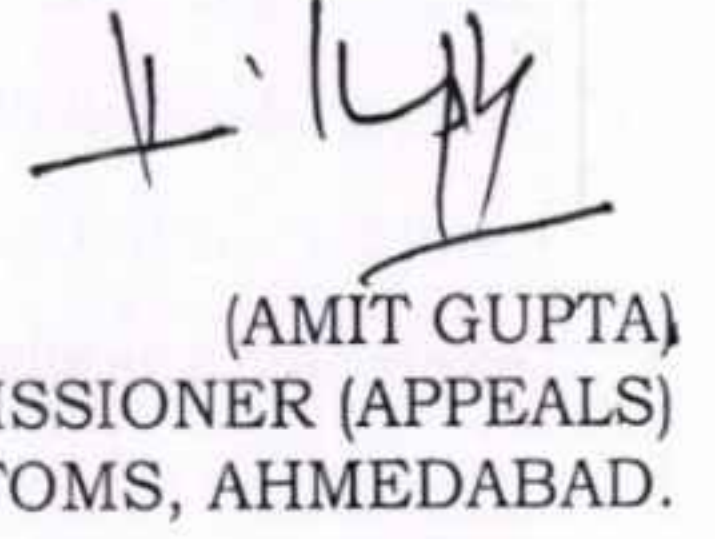 (AMIT GUPTA)
ISSIONER (APPEALS)
TOMS, AHMEDABAD.